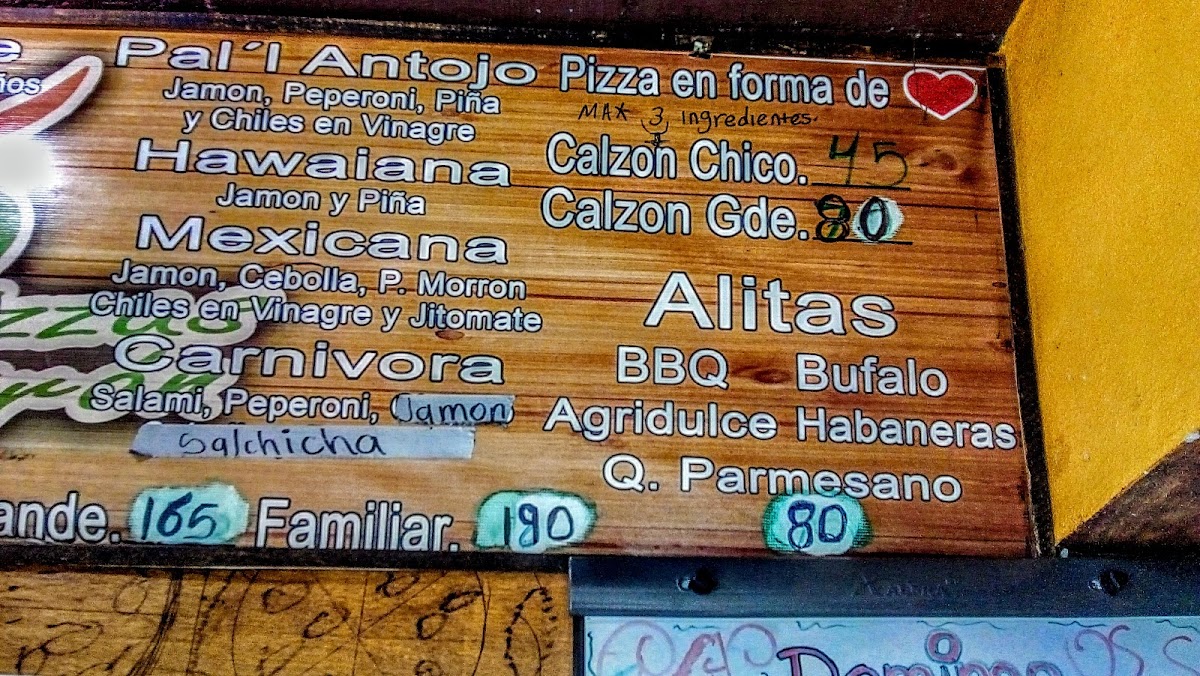 Pal´l Antojo
Jamon, Peperoni, Piña
y Chiles en Vinagre
Hawaiana
Jamon y Piña
Mexicana
Jamon, Cebolla, P. Morron
Chiles en Vinagre y Jitomate
Carnivora
Salami, Peperoni, Jamon
Salchicha
ande. 165 Familiar. 190
Pizza en forma de
MAX 3 ingredientes.
Calzon Chico. 45
Calzon Gde. 80
Alitas
BBQ Bufalo
Agridulce Habaneras
Q. Parmesano
80